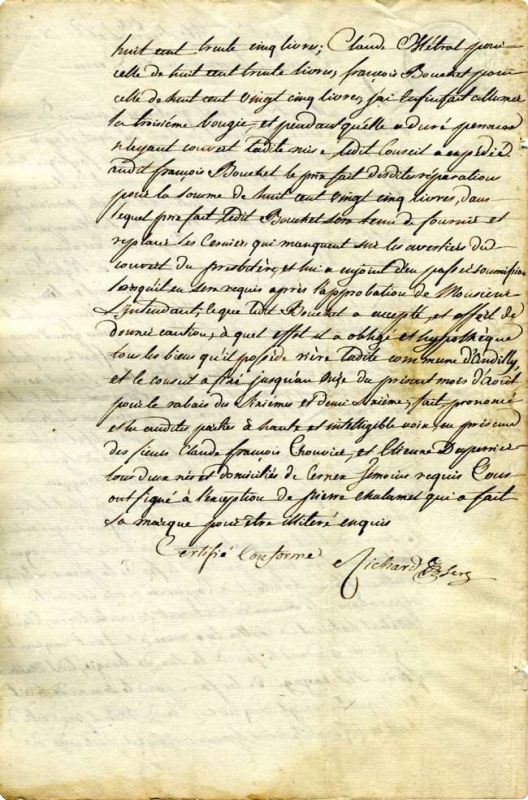 huit cent trente cinq livres; Claude Hétral pour
celle de huit cent trente livres, françois Bouchet pour
celle de huit cent vingt cinq livres, j'ai enfin fait allumer
la troisiéme bougie, et pendant qu'elle a duré personne
n'ayant couvert ladite mise ledit Conseil a expédié
audit françois Bouchet le prix fait desdites réparation
pour la somme de huit cent vingt cinq livres, dans
lequel prix fait ledit Bouchet sera tenu de fournir et
replacer les Corniers qui manquent sur les avertiers du
couvert du presbitère, et lui a enjoint d'en passer soumission
lorsqu'il en sera requis après l'approbation de Monsieur
L'jntendant, ce que ledit Bouchet a accepté et offert de
donner caution, a quel effet il a obligé et hypothèque
tous les biens qu'il possède rière ladite commune d'Andilly,
et le conseil a fixé jusqu'au onze du présent mois d'Août
pour le rabais du sixièmes et demi sixième, fait, prononcé
et lu audites parties à haute et intelligible voix en présence
des sieurs Claude françois Chouvier, et Etienne Duperrier
tous deux nés et domiciliés de Cernex témoins requis Tous
ont signé à l'exception de pierre chalamel qui a fait
sa marque pour être illiteré enquis
Certifié Conforme Richard Secr